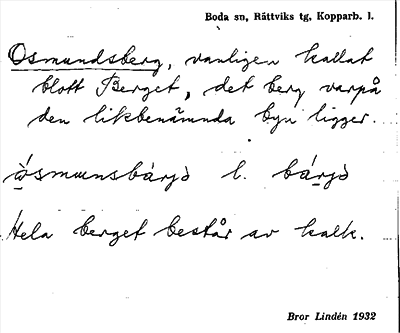 Boda sn, Rättviks tg, Kopparb. l.
Osmundsberg, vanligen kallat
blott Berget, det berg varpå
den likbenämnda byn ligger.
l.
Hela berget består av kalk.
Bror Lindén 1932